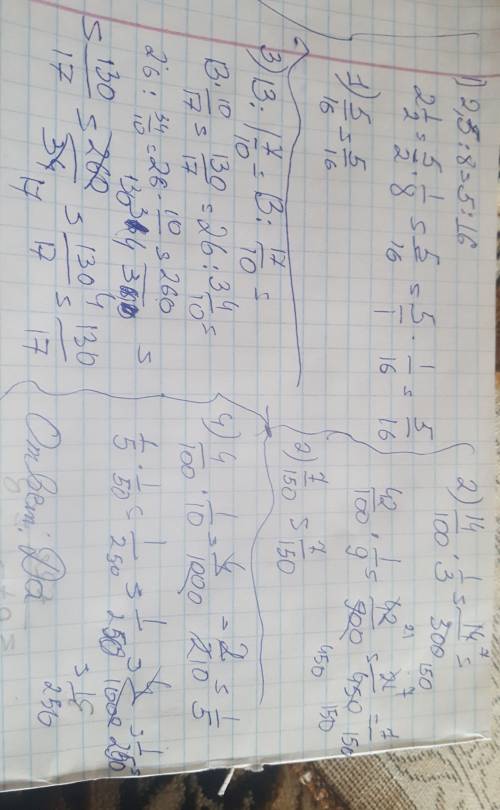 1) 2,5 : 8 = 5 : 16
2 1/2 = 5/2 · 1/8 = 5/16 = 5/1 · 1/16 = 5/16
1) 5/16 = 5/16
2) 14/100 · 1/3 = 14 7/300 150 =
42/100 · 1/9 = 42 21/900 450 = 21 7/450 150 = 7/150
2) 7/150 = 7/150
3) 13 : 1 7/10 = 13 : 17/10 =
13 · 10/17 = 130/17 = 26 : 34/10 =
26 : 34/10 = 26 · 10/34 = 260
= 130/17 = 260/34 = 130/17 = 130/17
4) 4/100 · 1/10 = 4/1000 = 2/10 = 1/5
1/5 · 1/50 = 1/250 = 1/250 = 4/1000 = 1/250
Ответ: Да